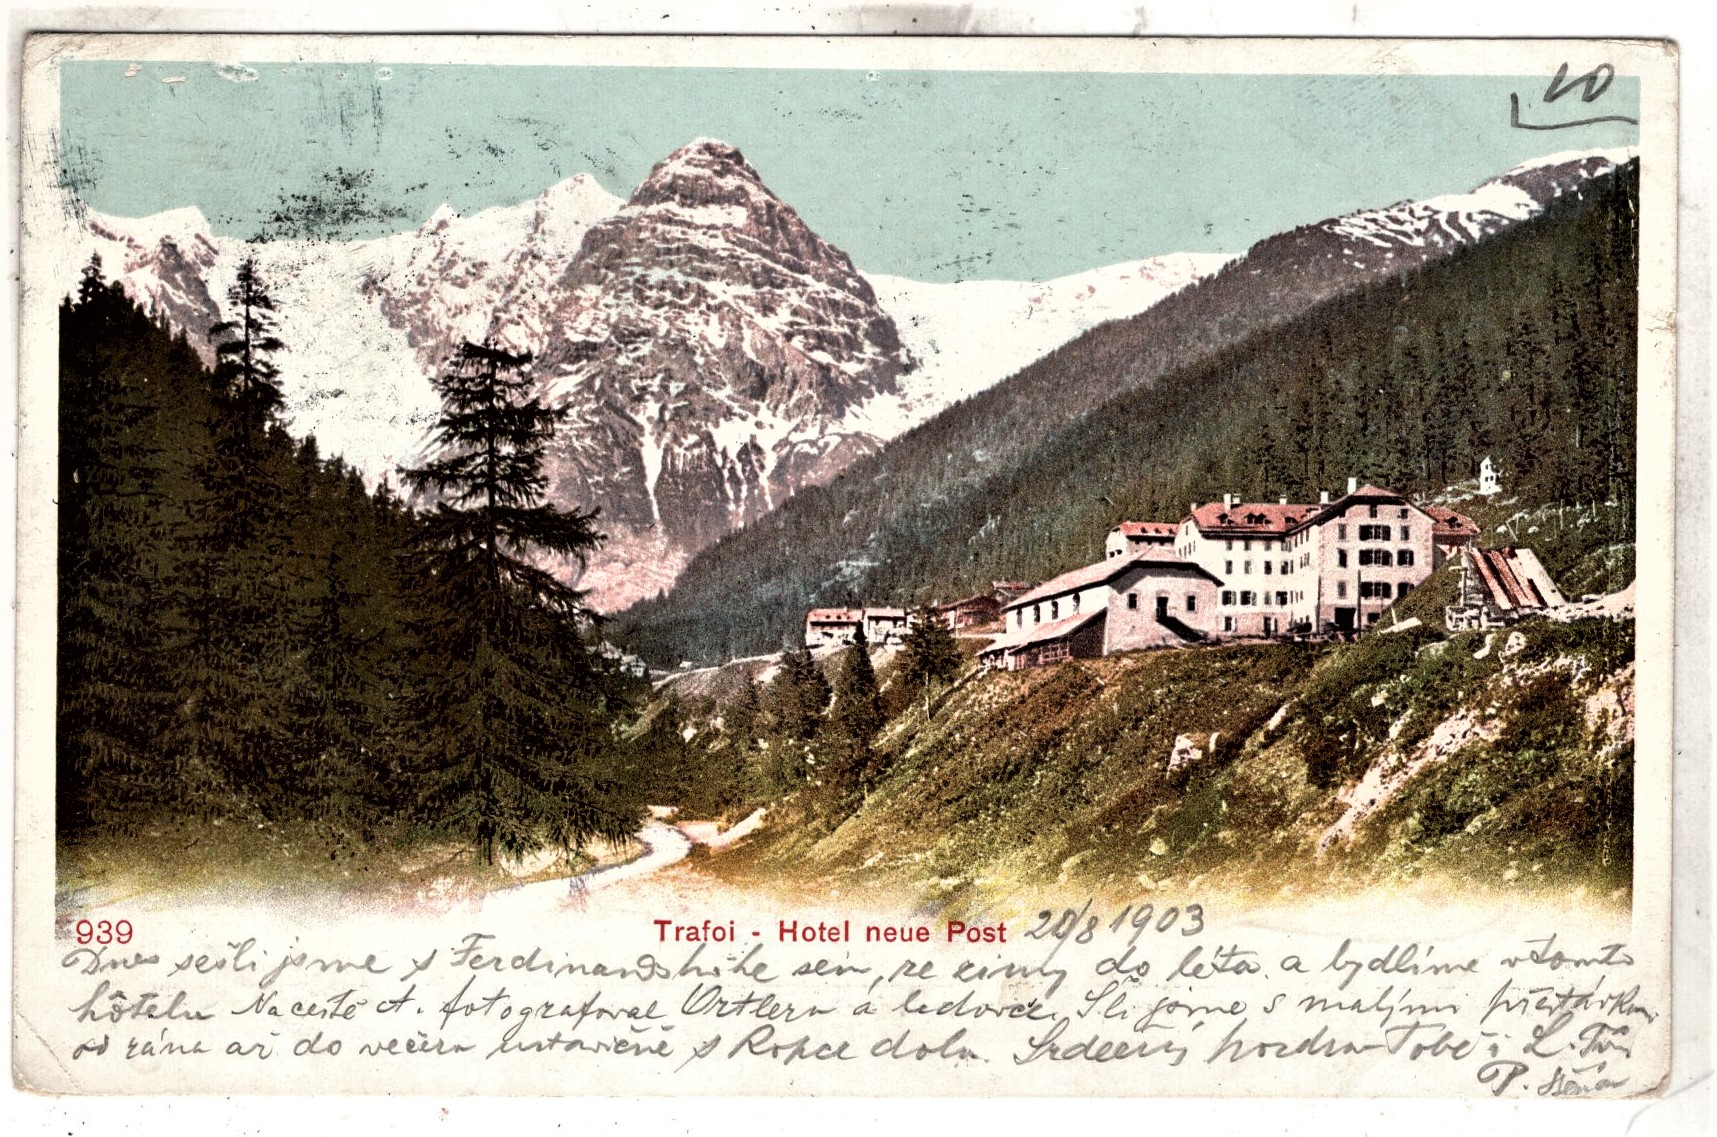 10
939 Trafoi - Hotel neue Post 20/8 1903
Dnes sešli jsme s Ferdinandshöhe sem, ze zimy do léta a bydlíme v tomto
hôtelu Na cestě A. fotografoval Ortlera a ledovce. Šli jsme s malými přestávkami
od rána až do večera ustavičně s kopce dolu. Srdečný pozdrav Tobě i L.
P.